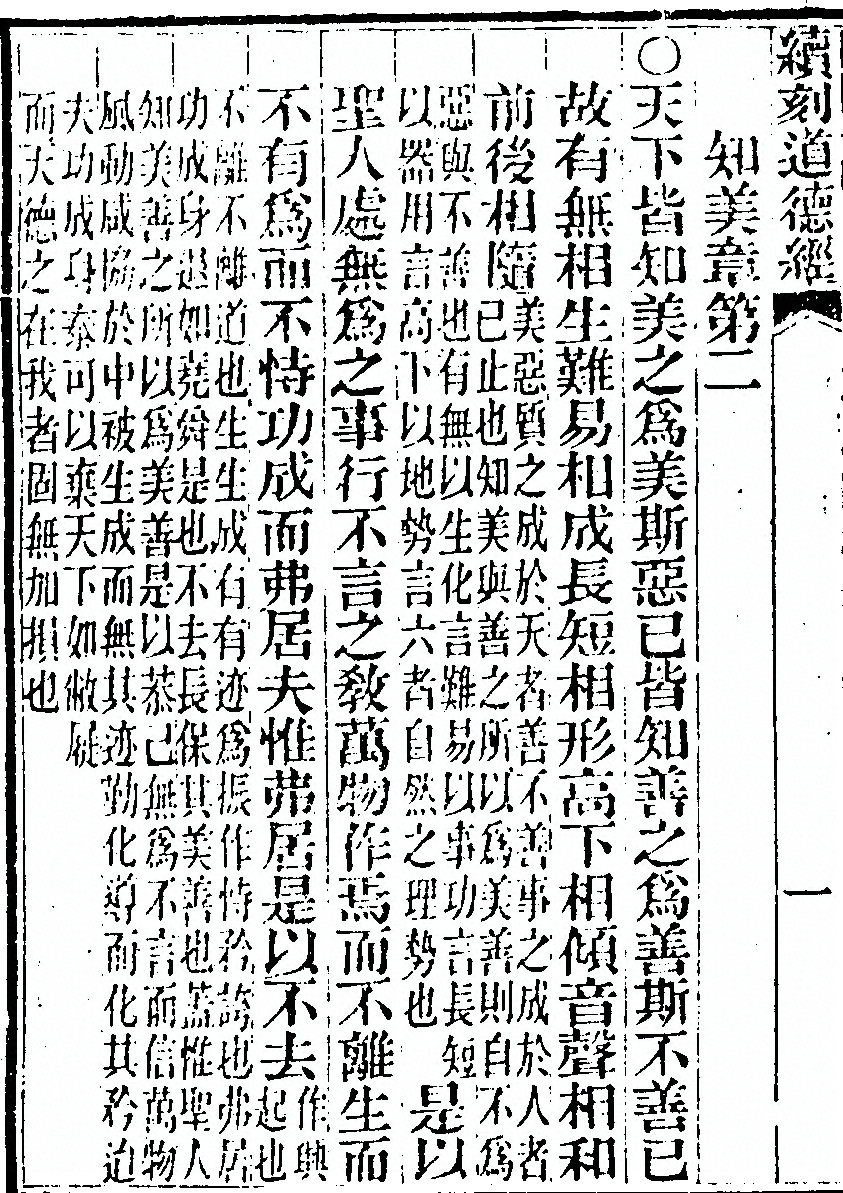 續刻道德經
一
知美章第二
〇天下皆知美之爲美斯惡已皆知善之爲善斯不善已
故有無相生難易相成長短相形高下相傾音聲相和
前後相隨
美惡質之成於天者善不善事之成於人者
已止也知美與善之所以爲美善則自不爲
惡與不善也有無以生化言難易以事功言長短
以器用言高下以地勢言六者自然之理勢也
是以
聖人處無爲之事行不言之教萬物作焉而不離生而
不有爲而不恃功成而弗居夫惟弗居是以不去
作興
起也
不離不離道也生生成有有迹爲振作恃矜誇也弗居
功成身退如堯舜是也不去長保其美善也蓋惟聖人
知美善之所以爲美善是以恭己無爲不言而信萬物
風動咸協於中被生成而無其迹勤化導而化其矜迫
夫功成身泰可以棄天下如敝屣
而天德之在我者固無加損也